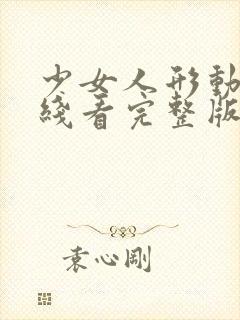 少女人形動
綫看完整版
袁心剛